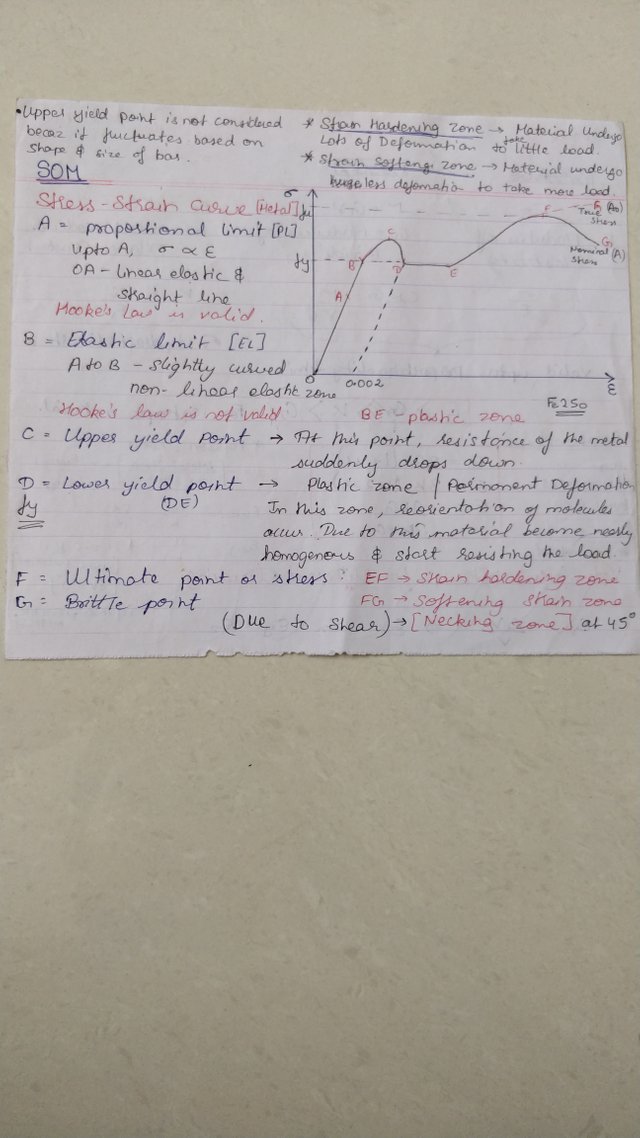 • Upper yield point is not considered
becoz it fluctuates based on
shape & size of bar.
* Strain Hardening zone → Material undergo
Lots of Deformation to take little load.
* Strain Softeng zone → Material undergo
less deformation to take more load.
SOM
Stress-Strain Curve [Metal]
A = proportional limit [PL]
upto A, σ ∝ ε
OA - linear elastic &
straight line
Hooke's Law is valid.
B = Elastic limit [EL]
A to B - slightly curved
non-linear elastic zone
Hooke's law is not valid
σ
fu
fy
A
B
C
D
E
F
G (A₀)
True stress
G
Nominal (A)
stress
O
0.002
ε
Fe250
BE - plastic zone
C = Upper yield point → At this point, resistance of the metal
suddenly drops down.
D = Lower yield point → Plastic zone / Permanent Deformation
fy (DE) In this zone, reorientation of molecules
occur. Due to this material become nearly
homogenous & start resisting the load.
F = Ultimate point or stress : EF → Strain hardening zone
G = Brittle point FG → Softening strain zone
(Due to shear) → [Necking zone] at 45°